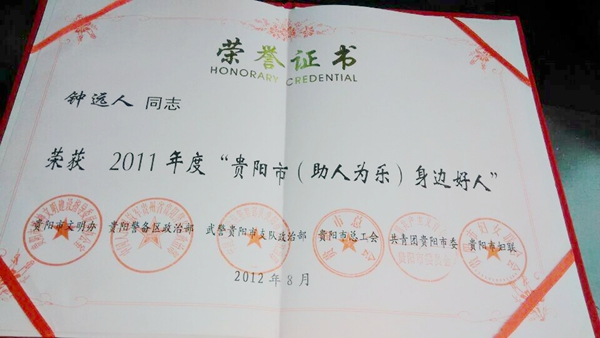 荣誉证书
HONORARY CREDENTIAL
钟远人 同志
荣获 2011年度“贵阳市（助人为乐）身边好人”
贵阳市文明办 贵阳警备区政治部 武警贵阳市支队政治部 贵阳市总工会 共青团贵阳市委 贵阳市妇联
2012年8月